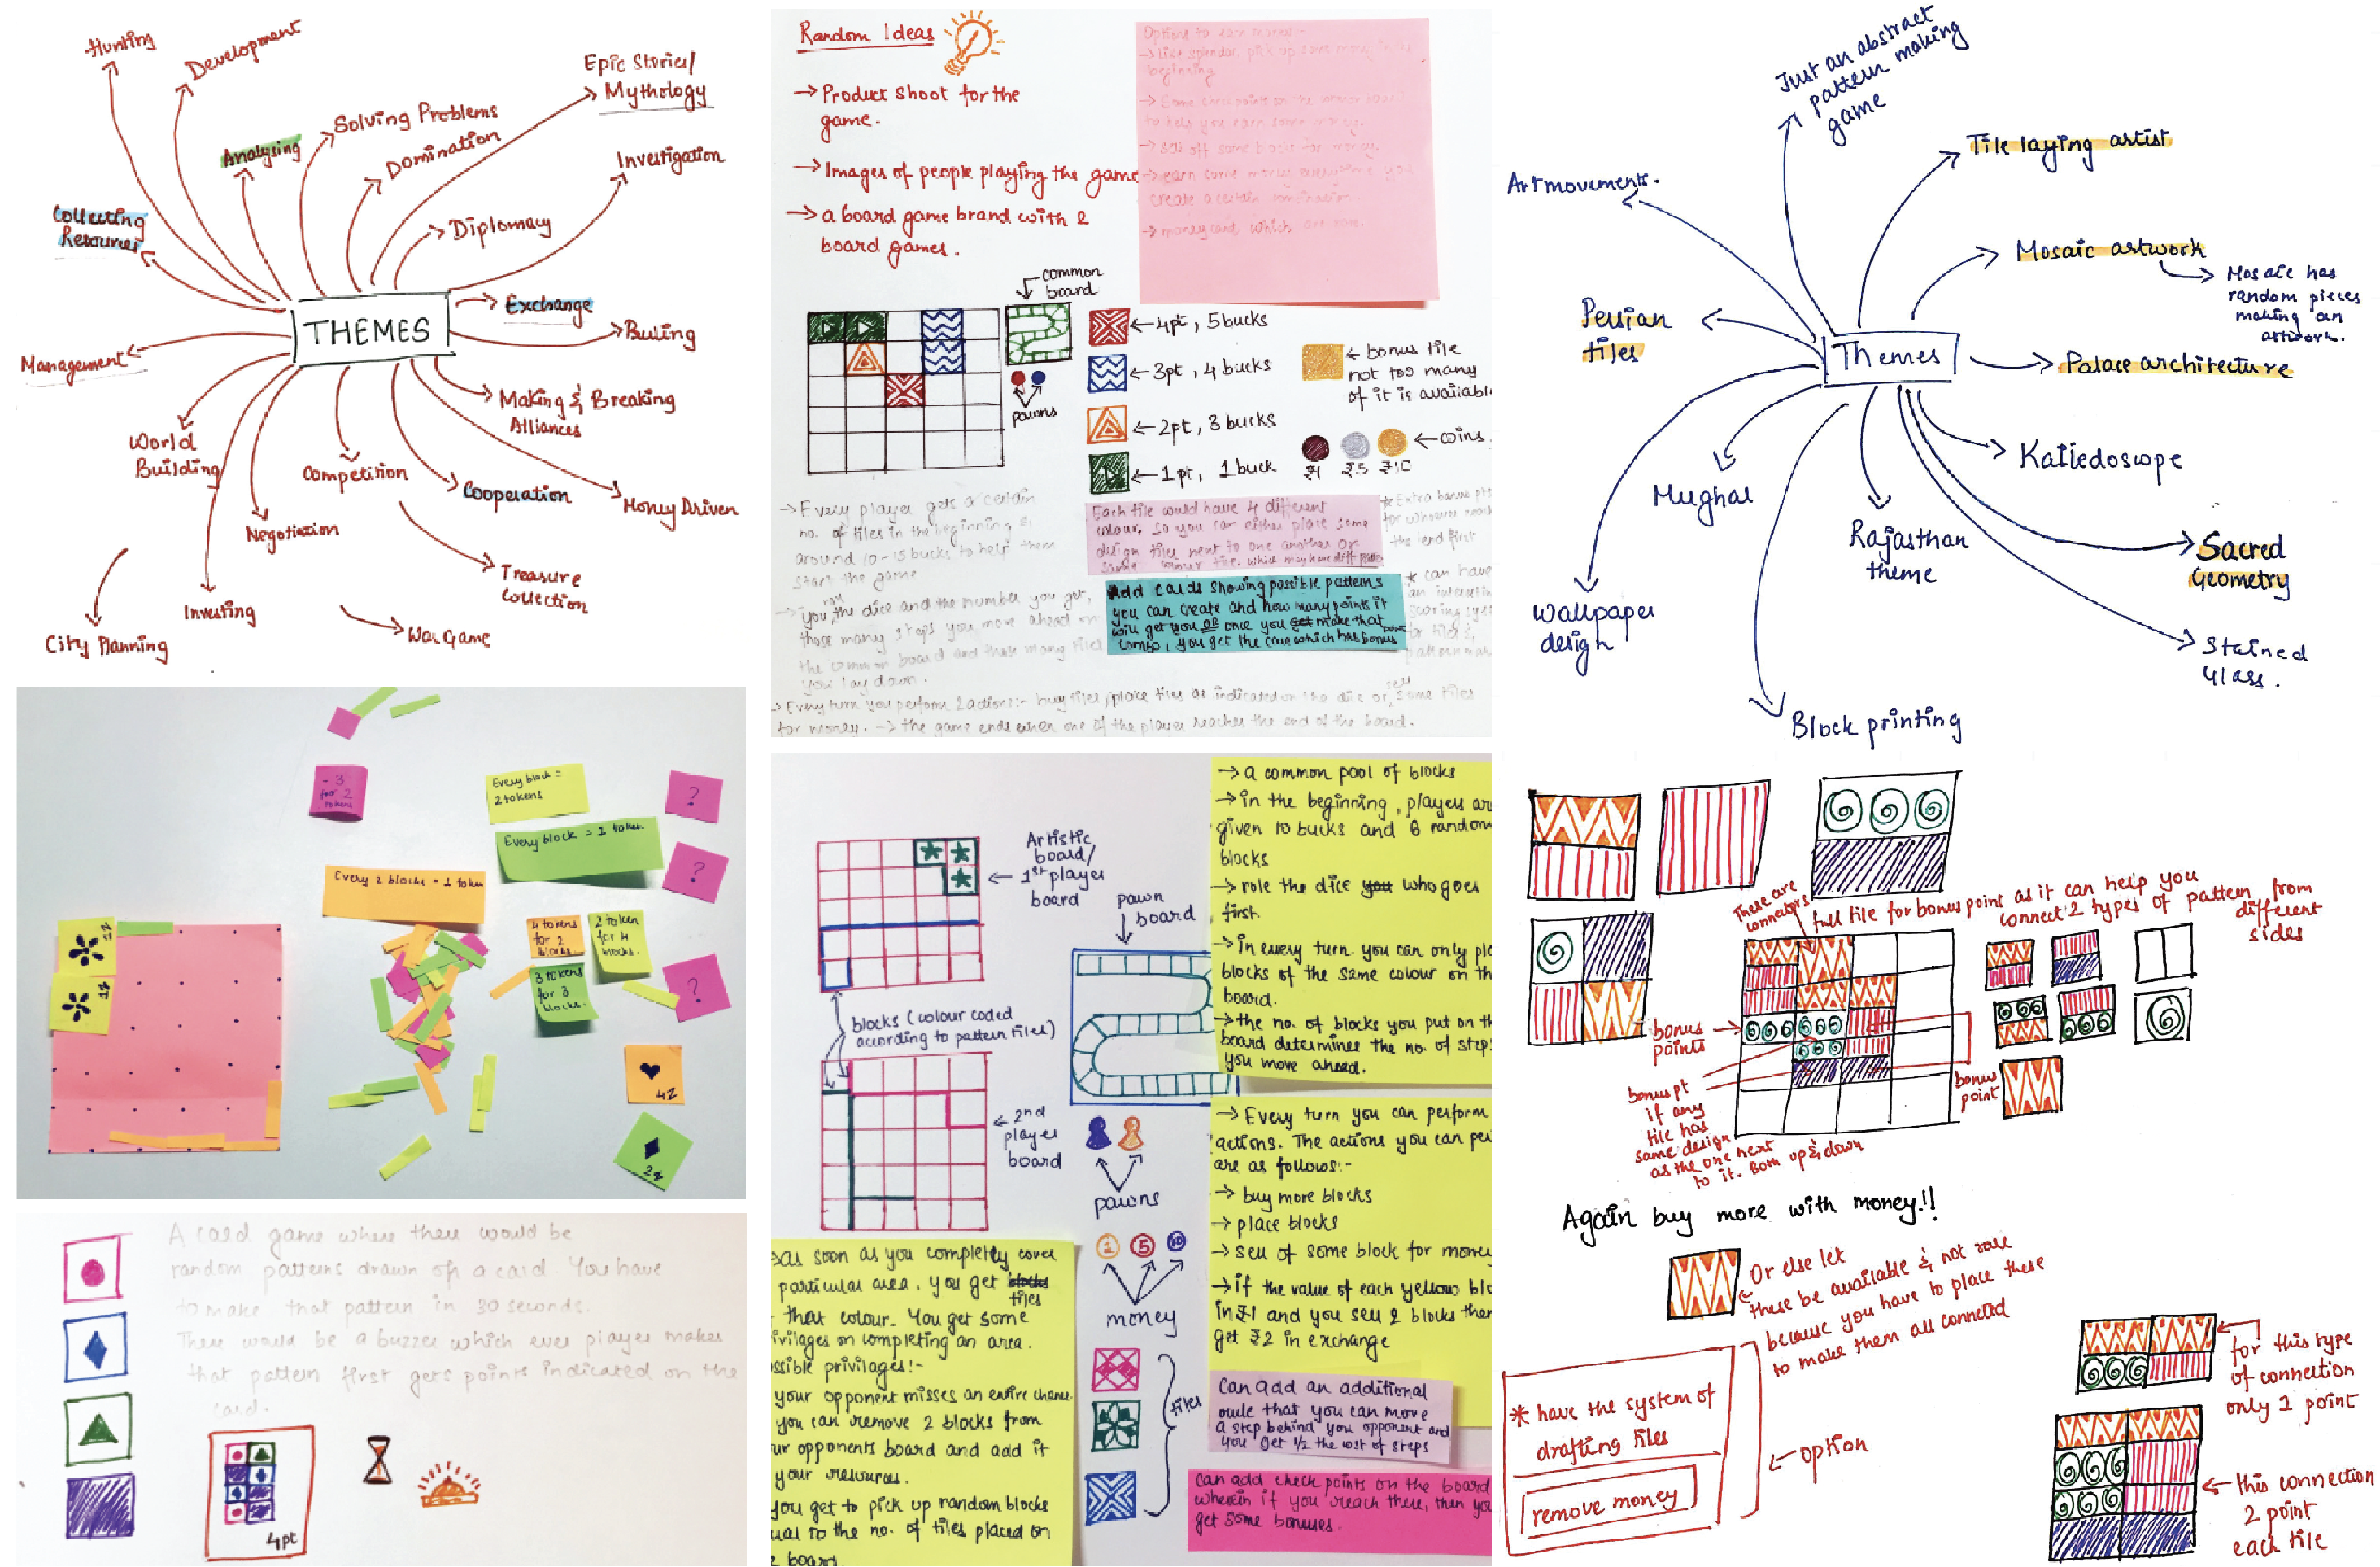 Hunting
Development
Epic Stories/
Mythology
Solving Problems
Analysing
Domination
Investigation
Collecting
Resources
Diplomacy
Exchange
THEMES
Management
Making & Breaking
Alliances
World
Building
Competition
Cooperation
Money Driven
Negotiation
Treasure
Collection
Investing
City Planning
War Game
Random Ideas
→ Product shoot for the
game.
→ Images of people playing the game
→ a board game brand with 2
board games.
Options to earn money:-
beginning
common
board
pawns
← 4pt, 5 bucks
← 3pt, 4 bucks
← 2pt, 3 bucks
← 1pt, 1 buck
← bonus tile
not too many
of it is available
← coins.
₹1 ₹5 ₹10
→ Every player gets a certain
no. of tiles in the beginning &
around 10-15 bucks to help them
start the game
→ you roll the dice and the number you get,
those many steps you move ahead on
the common board and those many tiles
you lay down.
Each tile would have 4 different
colour. So you can either place same
design tiles next to one another or
Add cards showing possible patterns
you can create and how many points it
will get you OR once you get make that
combo, you get the card which has bonus
→ Every turn you perform 2 actions:- buy tiles, place tiles as indicated on the dice or, sell some tiles
for money. → the game ends when one of the player reaches the end of the board.
Just an abstract
pattern making
game
Tile laying artist
Art movements.
Mosaic artwork
Mosaic has
random pieces
making an
artwork.
Persian
tiles
Themes
Palace architecture
Katiedoscope
Mughal
Rajasthan
theme
Sacred
Geometry
Wallpaper
design
Stained
Glass.
Block printing
- 3
for 2
tokens
Every block =
2 tokens
Every block = 1 token
Every 2 blocks = 1 token
4 tokens
for 2
blocks
2 token
for 4
blocks.
3 tokens
for 3
blocks.
?
?
?
A card game where there would be
random patterns drawn on a card. You have
to make that pattern in 30 seconds.
There would be a buzzer which ever player makes
that pattern first gets points indicated on the
card.
4pt
Artistic
board/
1st player
board
pawn
board
blocks (colour coded
according to pattern tiles)
2nd
player
board
pawns
1 5 10
money
tiles
→ a common pool of blocks
→ in the beginning, players are
given 10 bucks and 6 random
blocks
→ role the dice you who goes
first.
→ in every turn you can only pla
blocks of the same colour on th
board.
→ the no. of blocks you put on th
board determines the no. of steps
you move ahead.
→ Every turn you can perform
actions. The actions you can per
are as follows:-
→ buy more blocks
→ place blocks
→ sell of some block for money
→ if the value of each yellow blo
in ₹1 and you sell 2 blocks then
get ₹2 in exchange
Can add an additional
rule that you can move
a step behind you opponent and
you get 1/2 the cost of steps
Can add check points on the board
wherein if you reach there, then you
get some bonuses.
as soon as you completely cover
particular area, you get blocks tiles
that colour. You get some
ivilages on completing an area.
ssible privilages:-
your opponent misses an entire chance.
you can remove 2 blocks from
ur opponents board and add it
your resources.
you get to pick up random blocks
ual to the no. of tiles placed on
board.
These are
connectors
full tile for bonus point as it can help you
connect 2 types of pattern from
different
sides
bonus
points
bonus pt
if any
tile has
same design
as the one next
to it. Both up & down
bonus
point
Again buy more with money!!
Or else let
these be available & not rare
because you have to place these
to make them all connected
* have the system of
drafting tiles
remove money
← option
for this type
of connection
only 1 point
← this connection
2 point
each tile